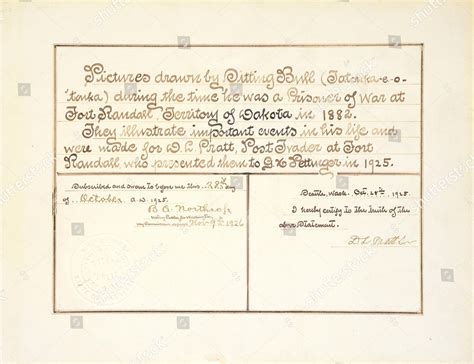 Pictures drawn by Sitting Bull (Tatonka-e-o-
tonka) during the time he was a Prisoner of War at
Fort Randall, Territory of Dakota in 1882.
They illustrate important events in his life and
were made for D L Pratt, Post Trader at Fort
Randall who presented them to G K Pettinger in 1925.
Subscribed and sworn to before me this 28th day
of October, A.D. 1925.
B. G. Northrop
Notary Public for Washington
my commission expires Nov 9th 1926
Seattle, Wash. Oct. 28th, 1925.
I hereby certify to the truth of the
above Statement.
D L Pratt